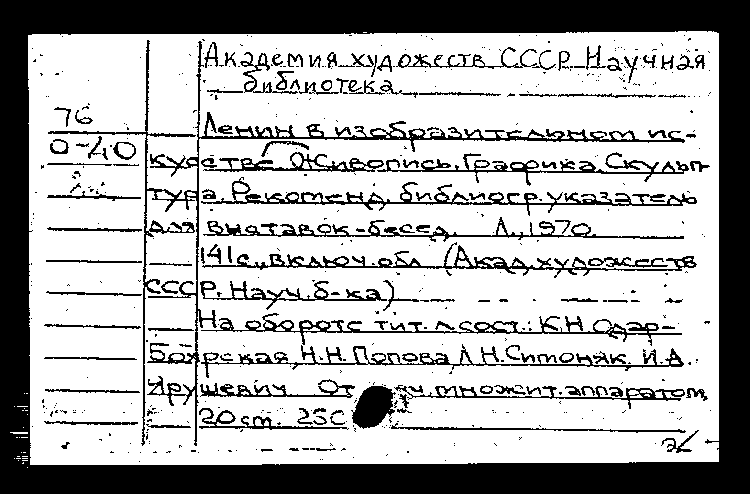 Академия художеств СССР Научная
библиотека
76
О-40
Ленин в изобразительном ис-
кусстве Живопись. Графика. Скульп-
тура. Рекоменд. библиогр. указатель
для выставок-бесед. Л., 1970.
141с., включ. обл. (Акад. художеств
СССР. Науч. б-ка)
На обороте тит. л. сост.: К.Н. Одар-
Боярская, Н.Н. Попова, Л.Н. Симоняк, И.А.
Ярушевич. От множит. аппаратом,
20 cm. 250